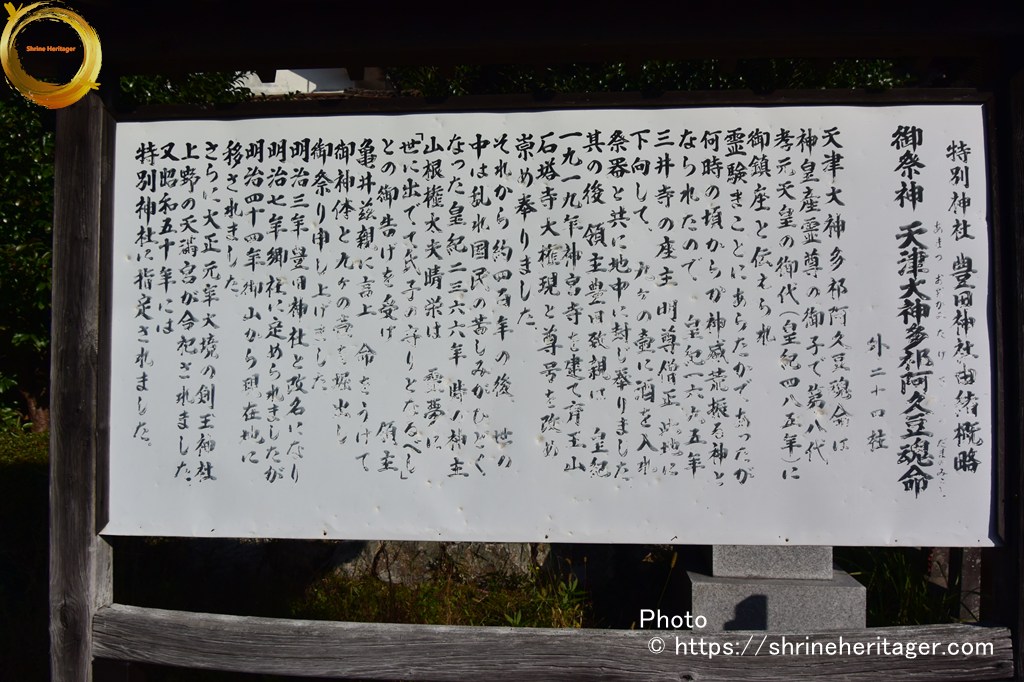 特別神社 豊田神社由緒概略
御祭神 天津大神多祁阿久豆魂命
外二十四柱
天津大神多祁阿久豆魂命は
神皇産霊尊の御子で第八代
孝元天皇の御代(皇紀四八五年)に
御鎮座と伝えられ
霊験きことにあらたかであったが
何時の頃からか神威荒振る神と
なられたので、皇紀一六六五年
三井寺の座主 明尊僧正 此地に
下向して、九ヶの壺に酒を入れ
祭器と共に地中に封じ奉りました
其の後 領主豊田致親は 皇紀
一九一九年神宮寺を建て育王山
石塔寺大権現と尊号を改め
崇め奉りました。
それから約四百年の後 世の
中は乱れ国民の苦しみがひどく
なった皇紀二二三六六年 時の神主
山根権大夫晴栄は 霊夢に
「世に出でて氏子の守りとなるべし」
との御告げを受け 領主
亀井茲親に言上 命をうけて
御神体と九ヶの壺を堀出し
御祭り申し上げました
明治三年 豊田神社と改名になり
明治七年郷社に定められましたが
明治四十四年御山から現在地に
移されました。
さらに大正元年大境の剣玉神社
上野の天満宮が合祀されました。
又昭和五十年には
特別神社に指定されました。
Shrine Heritager
Photo
© https://shrineheritager.com